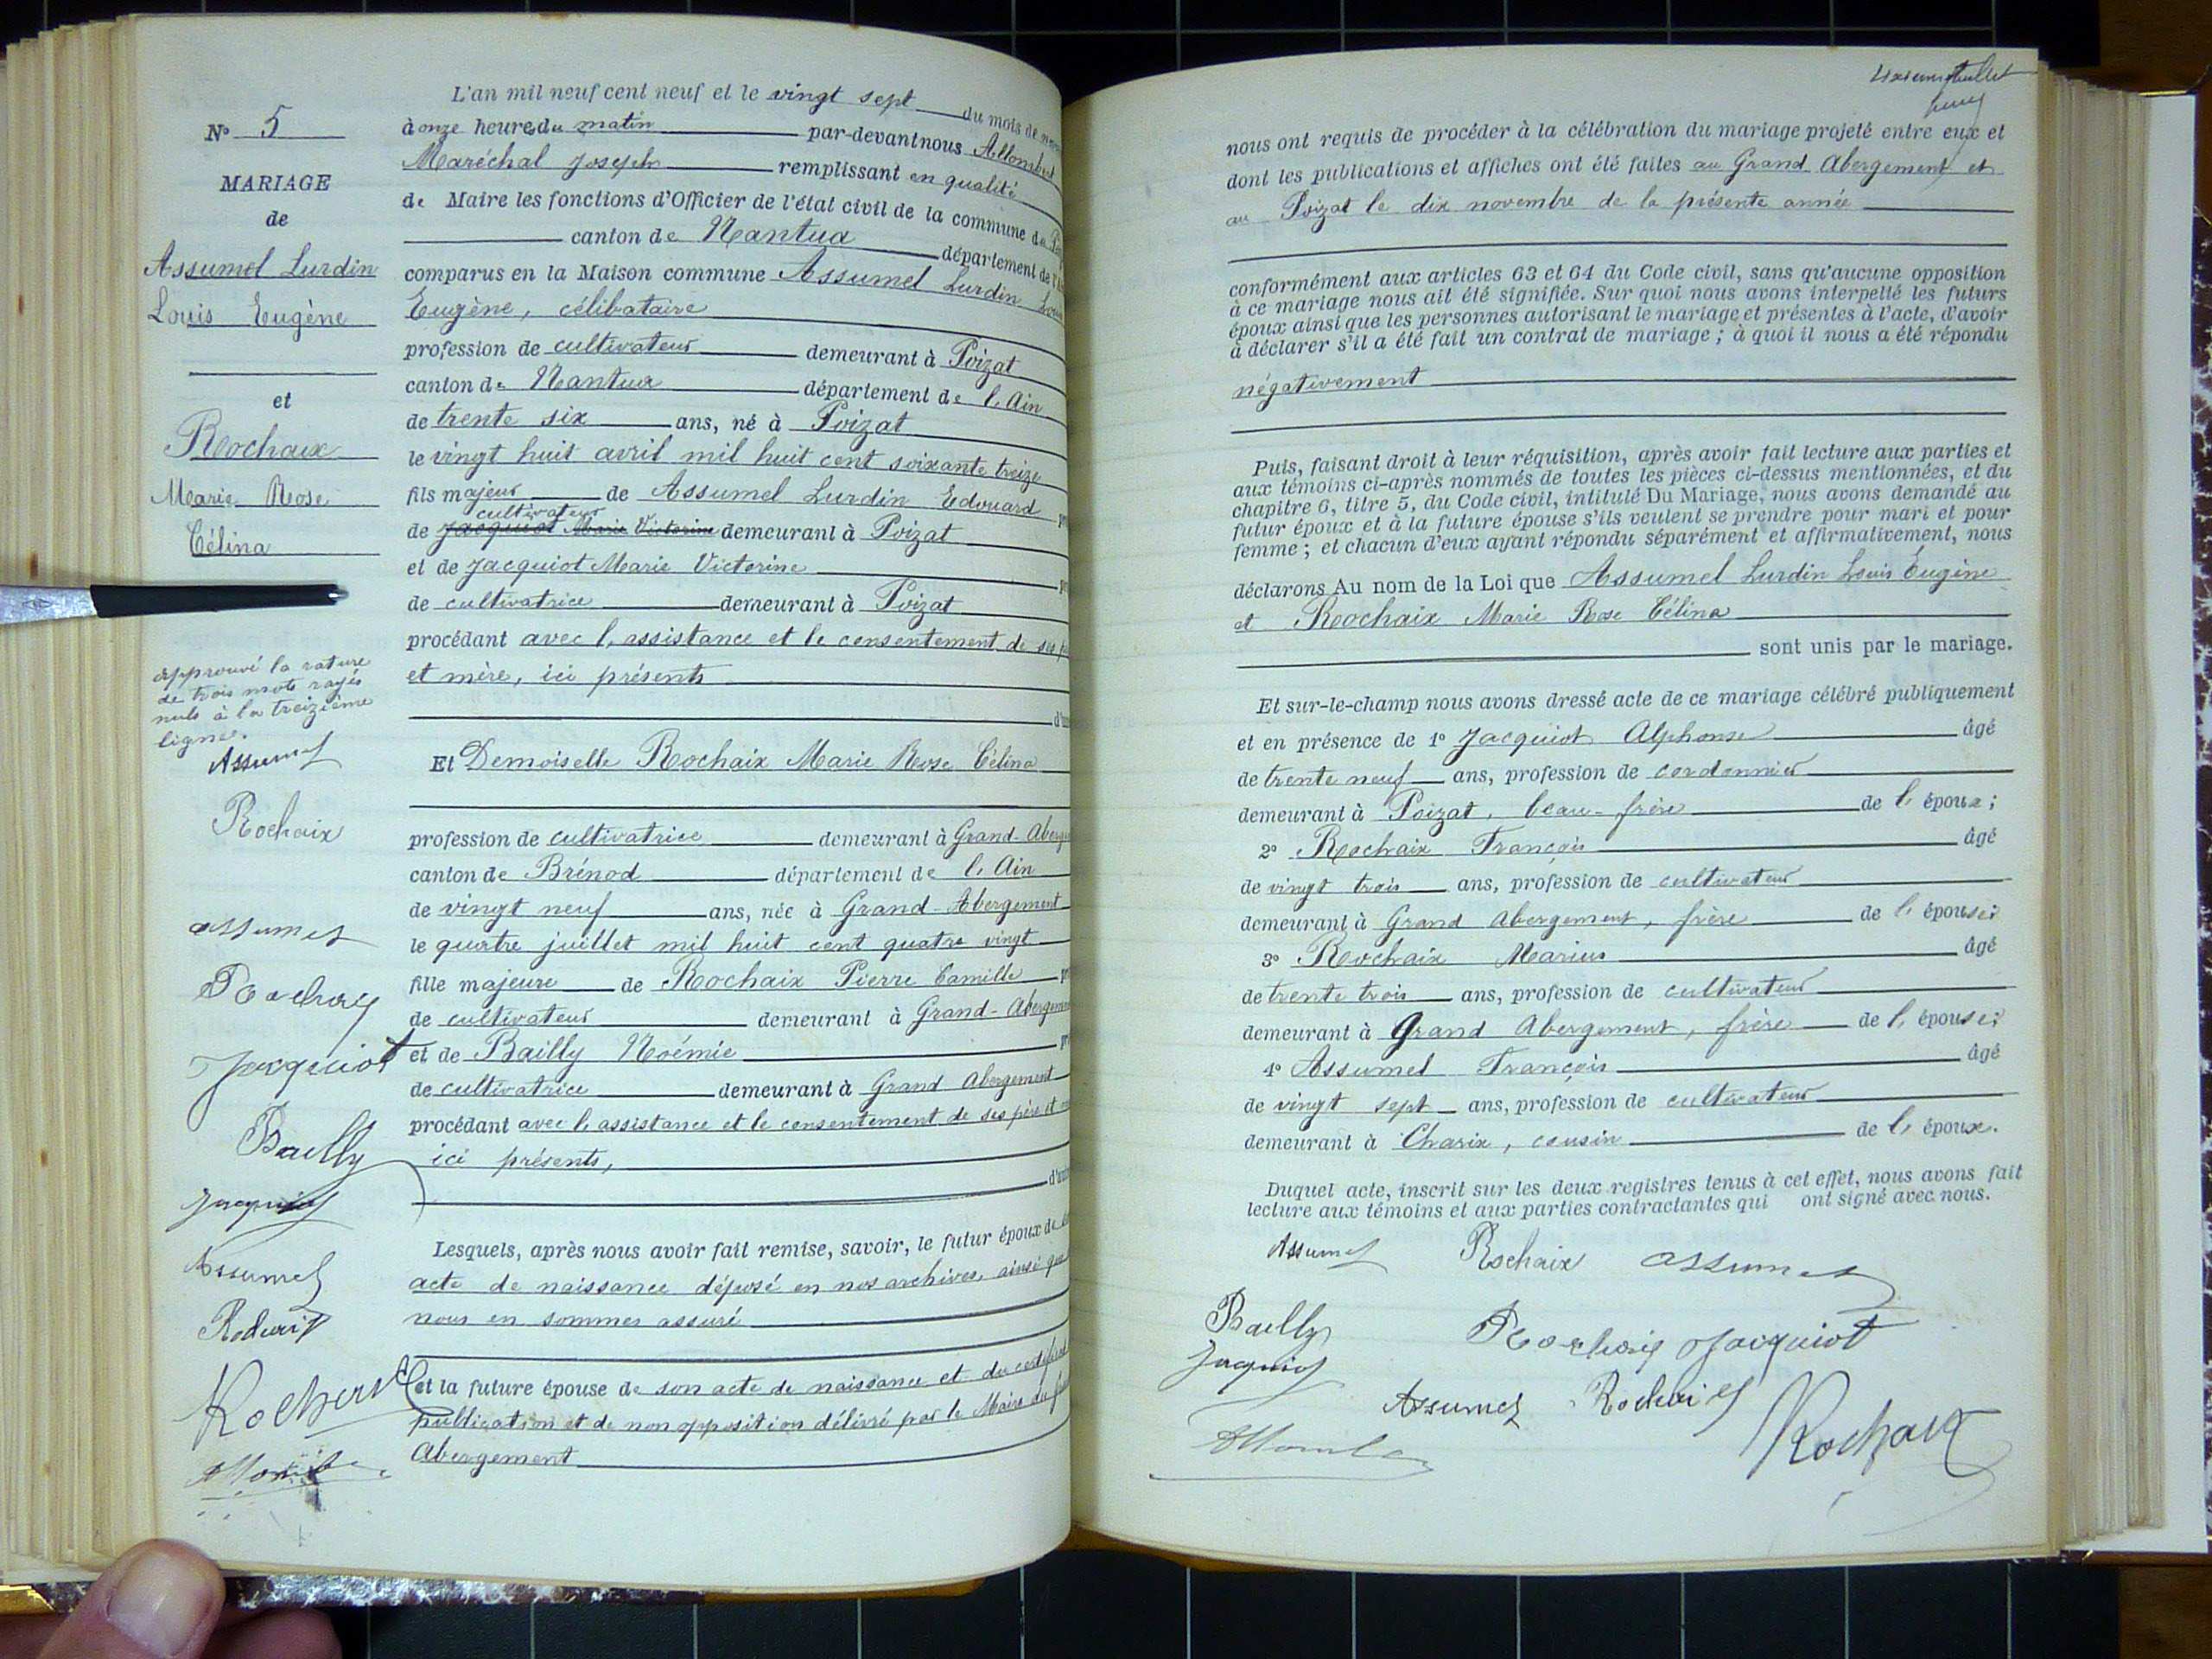 N° 5
MARIAGE
de
Assumel Lurdin
Louis Eugène
et
Rochaix
Marie Rose
Célina
approuvé la rature
de trois mots rayés
nuls à la treizième
ligne.
Assumel
Rochaix
assumel
Rochaix
Jacquiot
Bailly
Jacquiot
Assumel
Rochaix
L'an mil neuf cent neuf et le vingt sept du mois de
à onze heures du matin par-devant nous Allombert
Maréchal Joseph remplissant en qualité
de Maire les fonctions d'Officier de l'état civil de la commune du
canton de Nantua département de
comparus en la Maison commune Assumel Lurdin Louis
Eugène, célibataire
profession de cultivateur demeurant à Poizat
canton de Nantua département de l'Ain
de trente six ans, né à Poizat
le vingt huit avril mil huit cent soixante treize
fils majeur de Assumel Lurdin Edouard
cultivateur
de Jacquiot Marie Victorine demeurant à Poizat
et de Jacquiot Marie Victorine
de cultivatrice demeurant à Poizat
procédant avec l'assistance et le consentement de ses
et mère, ici présents
Et Demoiselle Rochaix Marie Rose Célina
profession de cultivatrice demeurant à Grand-
canton de Brénod département de l'Ain
de vingt neuf ans, née à Grand-Abergement
le quatre juillet mil huit cent quatre vingt
fille majeure de Rochaix Pierre Camille
de cultivateur demeurant à Grand-Abergement
et de Bailly Noémie
de cultivatrice demeurant à Grand Abergement
procédant avec l'assistance et le consentement de ses père et
ici présents,
Lesquels, après nous avoir fait remise, savoir, le futur époux de
acte de naissance déposé en nos archives, ainsi que
nous en sommes assuré
et la future épouse de son acte de naissance et du certificat
publication et de non opposition délivré par le Maire du
Abergement
feuillet
nous ont requis de procéder à la célébration du mariage projeté entre eux et
dont les publications et affiches ont été faites au Grand Abergement et
au Poizat le dix novembre de la présente année
conformément aux articles 63 et 64 du Code civil, sans qu'aucune opposition
à ce mariage nous ait été signifiée. Sur quoi nous avons interpellé les futurs
époux ainsi que les personnes autorisant le mariage et présentes à l'acte, d'avoir
à déclarer s'il a été fait un contrat de mariage ; à quoi il nous a été répondu
négativement
Puis, faisant droit à leur réquisition, après avoir fait lecture aux parties et
aux témoins ci-après nommés de toutes les pièces ci-dessus mentionnées, et du
chapitre 6, titre 5, du Code civil, intitulé Du Mariage, nous avons demandé au
futur époux et à la future épouse s'ils veulent se prendre pour mari et pour
femme ; et chacun d'eux ayant répondu séparément et affirmativement, nous
déclarons Au nom de la Loi que Assumel Lurdin Louis Eugène
et Rochaix Marie Rose Célina
sont unis par le mariage.
Et sur-le-champ nous avons dressé acte de ce mariage célébré publiquement
et en présence de 1° Jacquiot Alphonse âgé
de trente neuf ans, profession de cordonnier
demeurant à Poizat, beau-frère de l'époux ;
2° Rochaix François âgé
de vingt trois ans, profession de cultivateur
demeurant à Grand Abergement, frère de l'épouse ;
3° Rochaix Marius âgé
de trente trois ans, profession de cultivateur
demeurant à Grand Abergement, frère de l'épouse ;
4° Assumel François âgé
de vingt sept ans, profession de cultivateur
demeurant à Charix, cousin de l'époux.
Duquel acte, inscrit sur les deux registres tenus à cet effet, nous avons fait
lecture aux témoins et aux parties contractantes qui ont signé avec nous.
Assumel Rochaix assumel
Bailly Rochaix Jacquiot
Jacquiot
Assumel Rochaix Rochaix